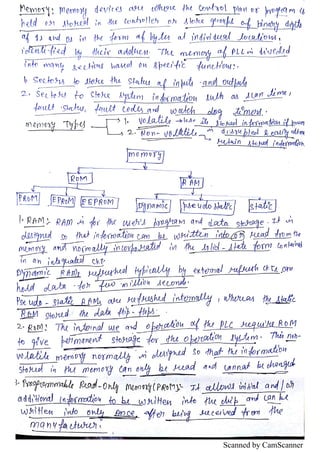 Memory: Memory devices are where the control plan or program is
held or stored in the controller or store groups of binary digits
of 1s and 0s in the form of bytes at individual locations,
identified by their address. The memory of PLC is divided
into many sections based on specific functions:-
1. Sectors to store the status of inputs and outputs
2. Sectors to store system information such as scan time,
fault status, fault codes and watch dog timers.
Memory Types 1. Volatile - loses its stored information if power
2. Non-volatile - is disrupted & easily often
retain stored information
memory
ROM
RAM
PROM
EPROM
EEPROM
Dynamic
Pseudo static
Static
1. RAM: RAM is for the user's program and data storage. It is
designed so that information can be written into or read from the
memory and normally incorporated in the solid-state form contained
in an integrated chip.
Dynamic RAMs refreshed typically by external refresh ckts, can
hold data for few million seconds.
Pseudo-static RAMs are refreshed internally, whereas the static
RAM stored the data flip-flops.
2. ROM: The internal use and operation of the PLC require ROM
to give permanent storage for the operation system. This non-
volatile memory normally is designed so that the information
stored in the memory can only be read and cannot be changed
3. Programmable Read-Only Memory (PROMs): It allows initial and/or
additional information to be written into the chip and can be
written into only once after being received from the
manufacturer.
Scanned by CamScanner